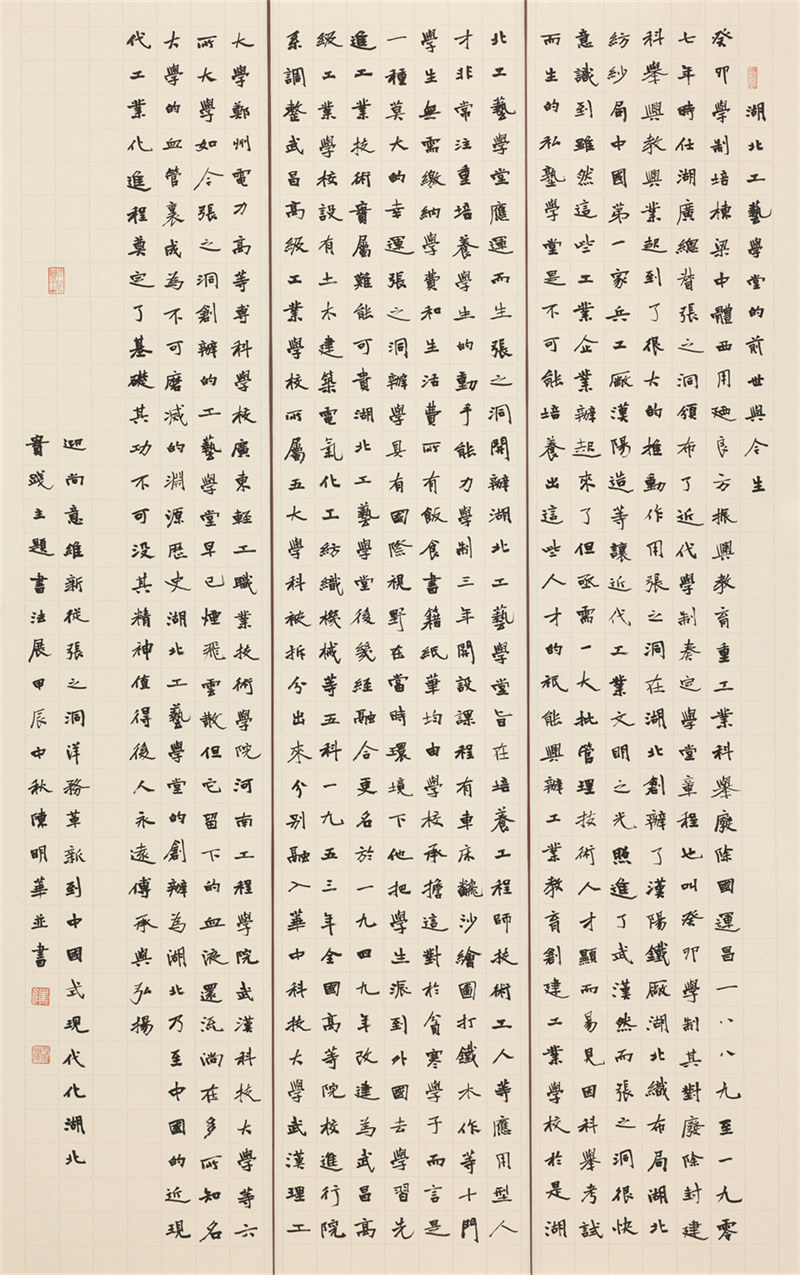 湖北工藝學堂的前世與今生
癸卯學制培棟梁中體西用廼良方振興教育重工業科舉廢除國運昌一八八九至一九零
七年時仕湖廣總督張之洞頒布了近代學制奏定學堂章程也叫癸卯學制其對廢除封建
科舉興教興業起到了很大的推動作用張之洞在湖北創辦了漢陽鐵廠湖北織布局湖北
紡紗局中國第一家兵工廠漢陽造等讓近代工業文明之光照進了武漢然而張之洞很快
意識到雖然這些工業企業辦起來了但亟需一大批管理技術人才顯而易見因科舉考試
而生的私塾學堂是不可能培養出這些人才的祇能興辦工業教育創建工業學校於是湖
北工藝學堂應運而生張之洞開辦湖北工藝學堂旨在培養工程師技術工人等應用型人
才非常注重培養學生的動手能力學制三年開設課程有車床翻沙繪圖打鐵木作等十門
學生無需繳納學費和生活費所有飯食書籍紙筆均由學校承擔這對於貧寒學子而言是
一種莫大的幸運張之洞辦學具有國際視野在當時環境下他把學生派到外國去學習先
進工業技術實屬難能可貴湖北工藝學堂後幾經融合更名於一九四九年改建為武昌高
級工業學校設有土木建築電氣化工紡織機械等五科一九五三年全國高等院校進行院
系調整武昌高級工業學校所屬五大學科被拆分出來分別融入華中科技大學武漢理工
大學鄭州電力高等專科學校廣東輕工職業技術學院河南工程學院武漢科技大學等六
所大學如今張之洞創辦的工藝學堂早已煙飛雲散但它留下的血液還流淌在多所知名
大學的血管裏成為不可磨滅的淵源歷史湖北工藝學堂的創辦為湖北乃至中國的近現
代工業化進程奠定了基礎其功不可没其精神值得後人永遠傳承與弘揚
迎尚意維新從張之洞洋務革新到中國式現代化湖北
實踐主題書法展甲辰中秋陳明華並書